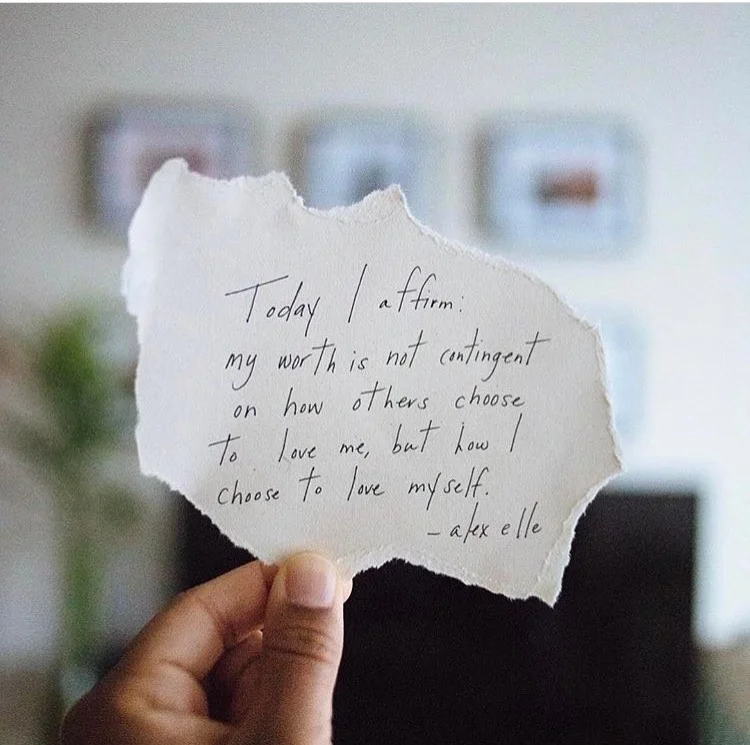 Today I affirm:
my worth is not contingent
on how others choose
to love me, but how I
choose to love myself.
- alex elle